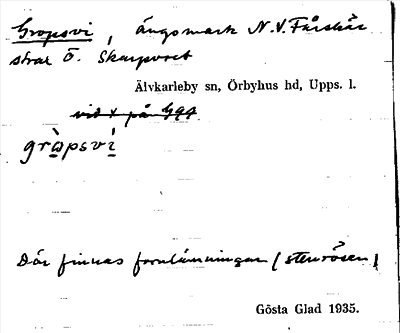 Gropsvi, ängsmark N.V. Fårskär
strax Ö. Skarpöret
Älvkarleby sn, Örbyhus hd, Upps. l.
vid x på G94
gròpsvi
Där finnas fornlämningar (stenrösen)
Gösta Glad 1935.